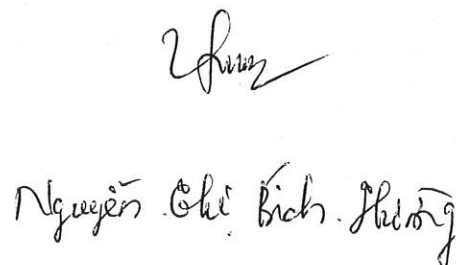 Nguyễn Thị Bích Phượng